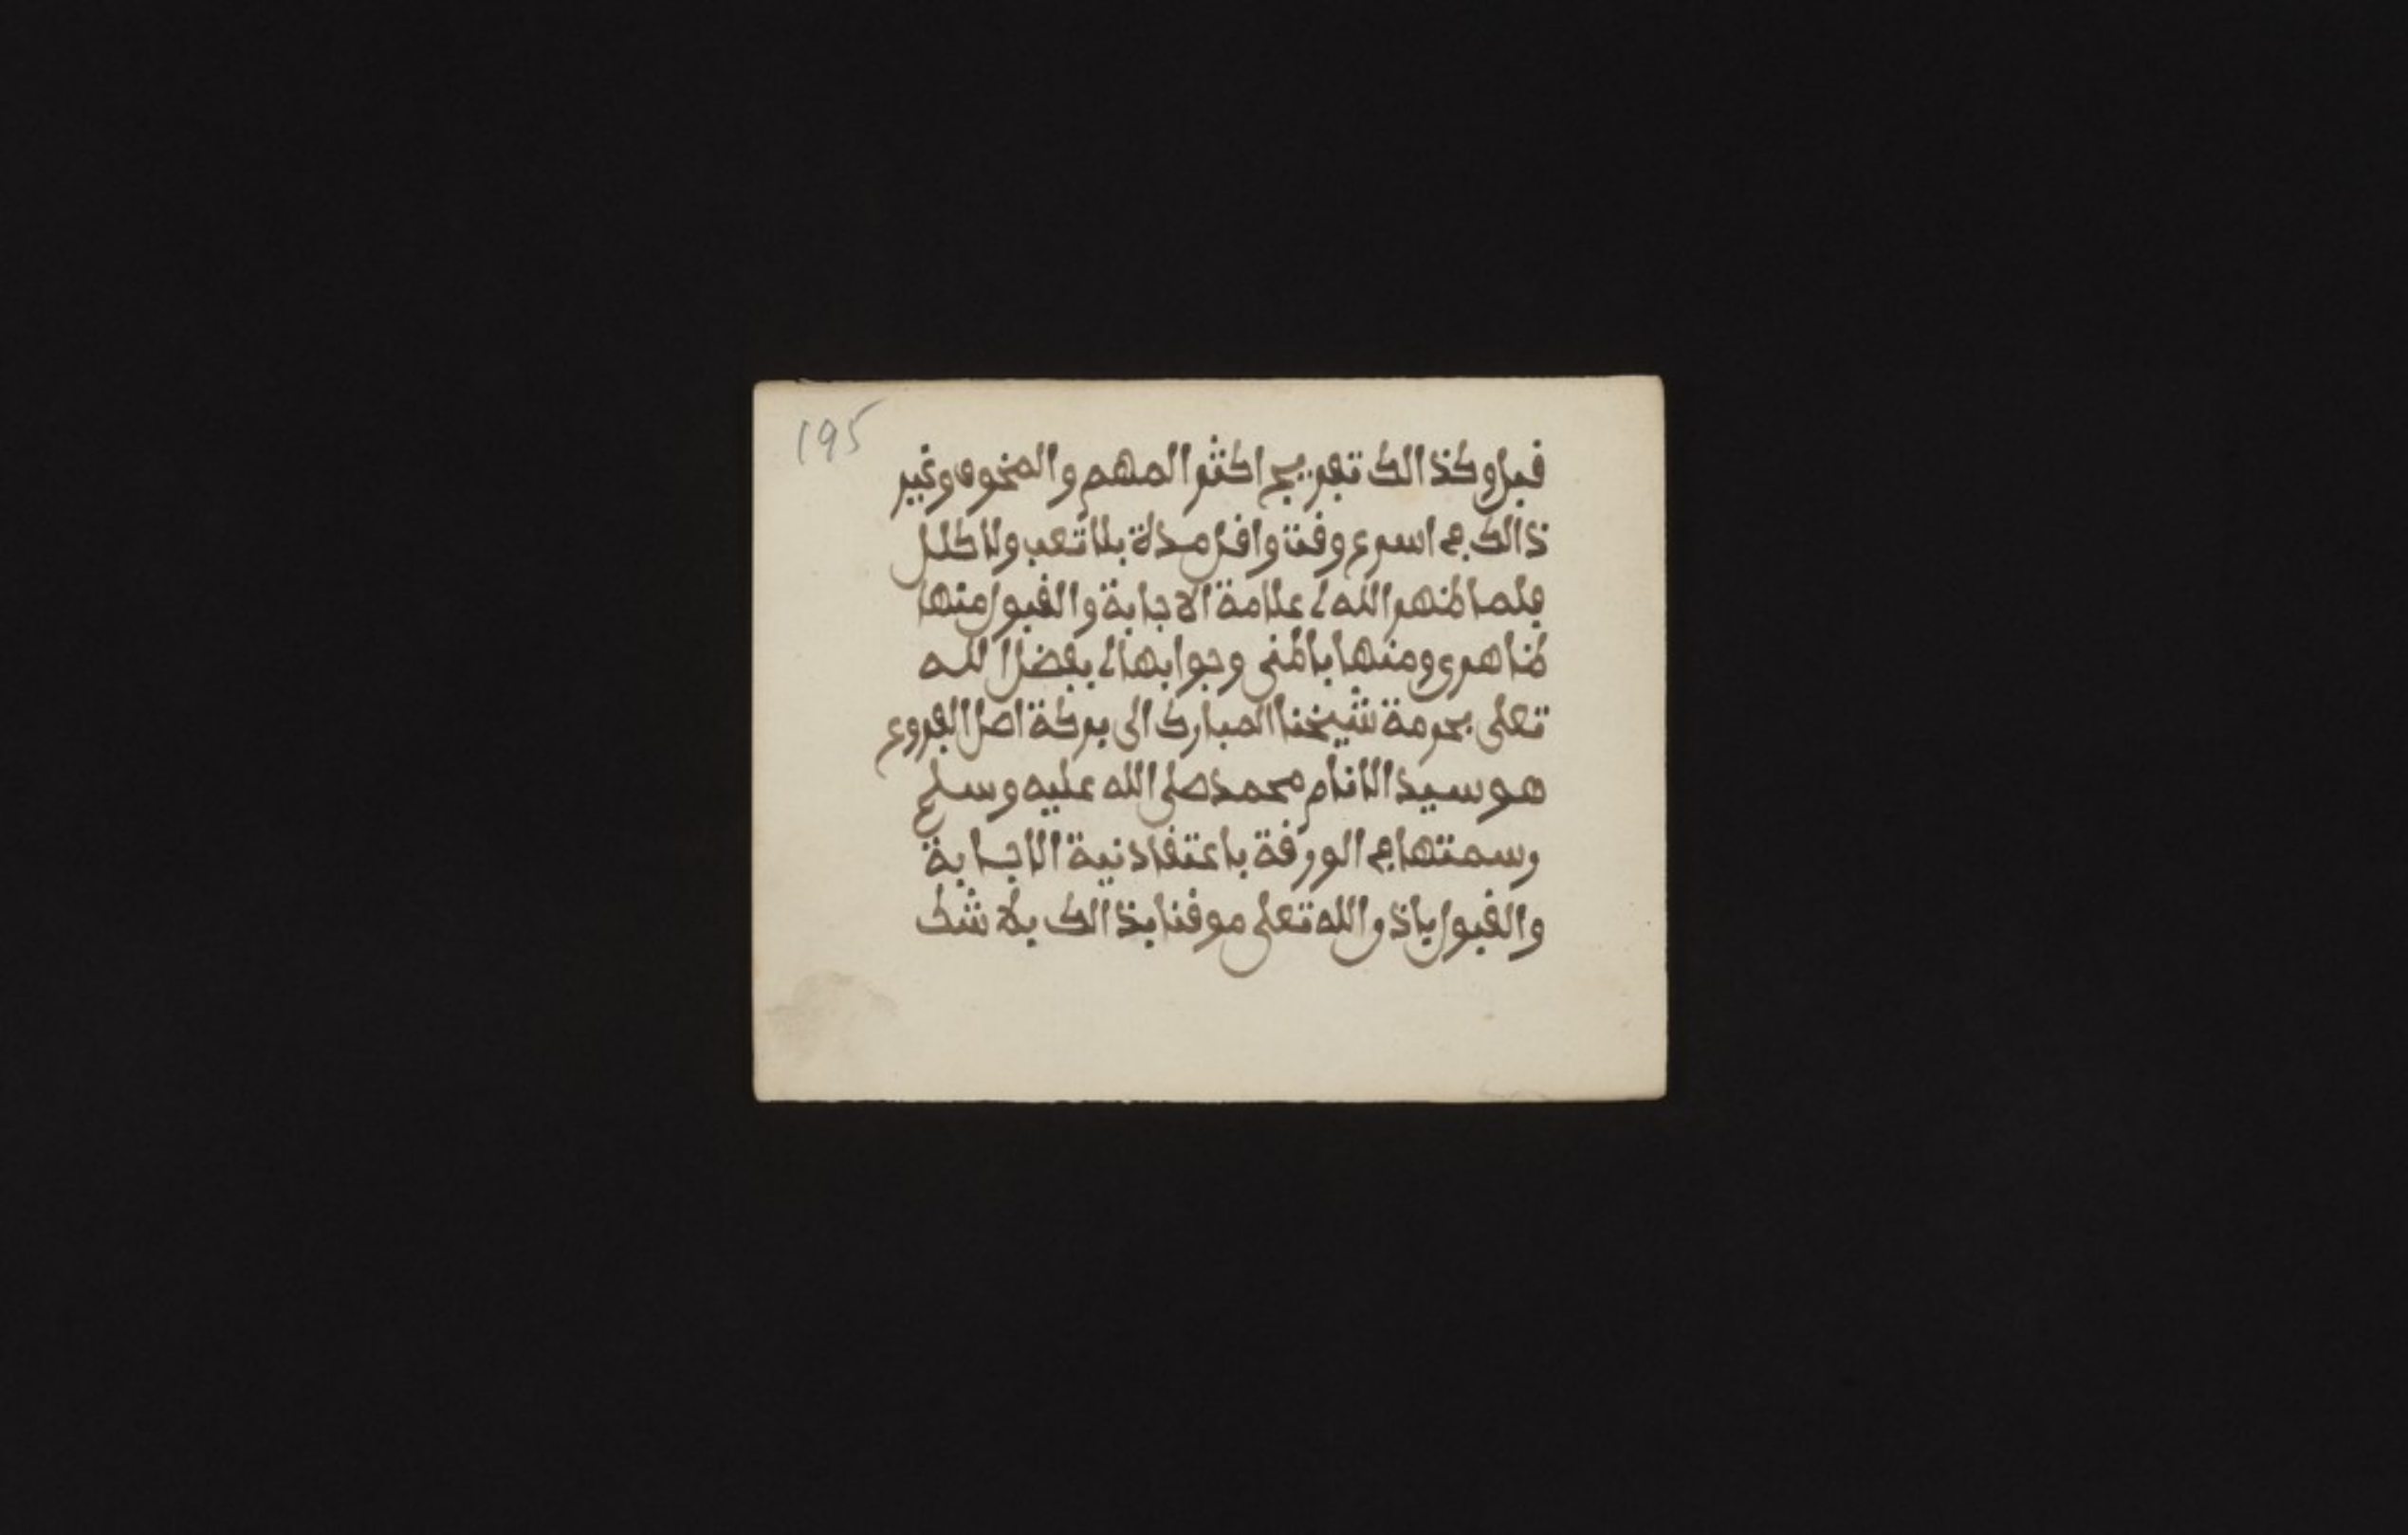 195
قبل وكذالك تفريج اكثر المهم والمخوف وغير
ذالك في اسرع وقت واقل مدة بلا تعب ولا كلل
فلما ظهر الله لى علامة الاجابة والقبول منها
ظاهرى ومنها باطنى وجوابها لى بفضل الله
تعلى بحرمة شيخنا المبارك الى بركة اصل الفروع
هو سيد الانام محمد صلى الله عليه وسلم
رسمتها في الورقة باعتقاد نية الاجابة
والقبول باذن الله تعلى موقنا بذالك بلا شك